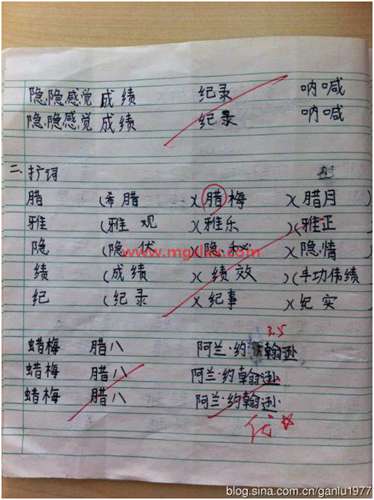 隐隐感觉 成绩 纪录 呐喊
隐隐感觉 成绩 纪录 呐喊
二、扩词
腊 (希腊 )(腊梅 )(腊月 )
雅 (雅观 )(雅乐 )(雅正 )
隐 (隐伏 )(隐秘 )(隐情 )
绩 (成绩 )(绩效 )(丰功伟绩
纪 (纪录 )(纪事 )(纪实
3.5
蜡梅 腊八 阿兰·约翰逊
蜡梅 腊八 阿兰·约翰逊
蜡梅 腊八 阿兰·约翰逊
优
blog.sina.com.cn/ganlu1977